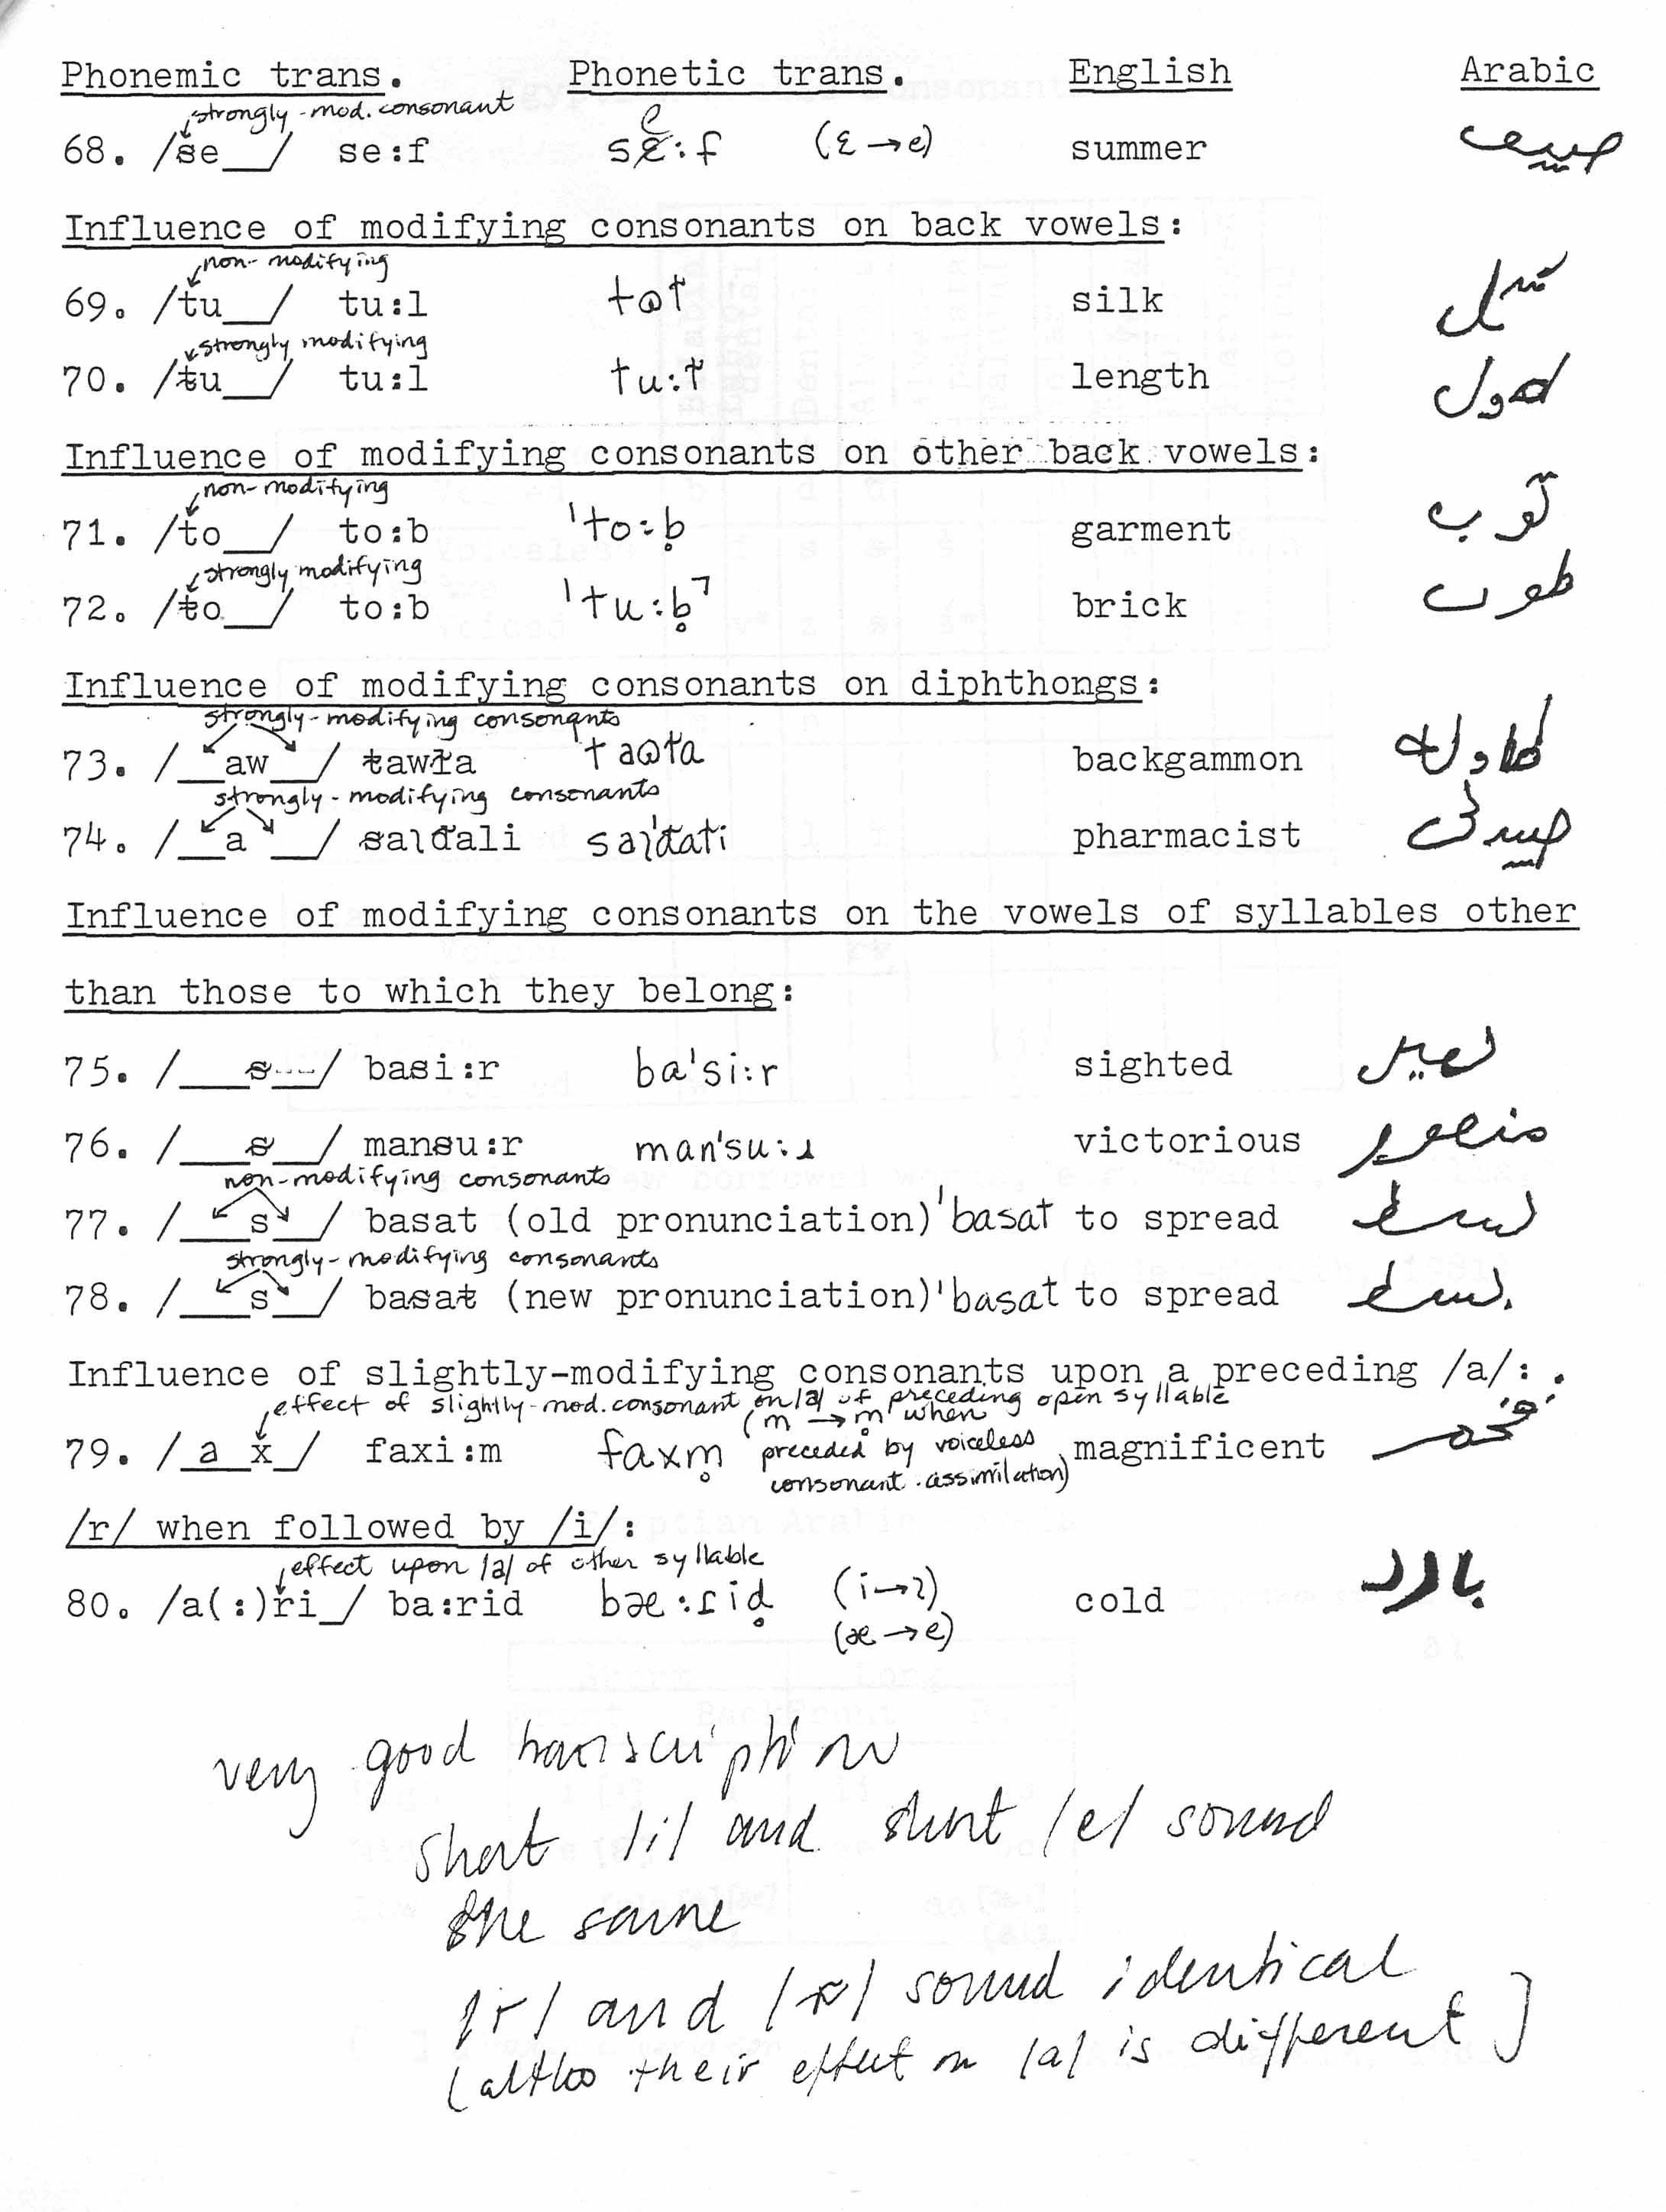 Phonemic trans. Phonetic trans. English Arabic
strongly-mod. consonant
68. /se__/ se:f se:f (ɛ→e) summer صيف
Influence of modifying consonants on back vowels:
non-modifying
69. /tu__/ tu:l silk
strongly modifying
70. /ŧu__/ tu:l tu:ɫ length طول
Influence of modifying consonants on other back vowels:
non-modifying
71. /to__/ to:b 'to:b̥ garment توب
strongly modifying
72. /ŧo__/ to:b 'tu:b̥˺ brick طوب
Influence of modifying consonants on diphthongs:
strongly-modifying consonants
73. /__aw__/ ŧawɫa backgammon طاولة
strongly-modifying consonants
74. /__a__/ pharmacist صيدلي
Influence of modifying consonants on the vowels of syllables other
than those to which they belong:
75. /___s___/ basi:r ba'si:r sighted بصير
76. /___s__/ mansu:r man'su:ɹ victorious منصور
non-modifying consonants
77. /___s__/ basat (old pronunciation) 'basat to spread بسط
strongly-modifying consonants
78. /___s__/ basaŧ (new pronunciation) 'basat to spread بسط
Influence of slightly-modifying consonants upon a preceding /a/:.
effect of slightly-mod. consonant on /a/ of preceding open syllable
(m → m̥ when
79. /_a__x_/ faxi:m faxm̥ preceded by voiceless magnificent
consonant. assimilation)
/r/ when followed by /i/:
effect upon /a/ of other syllable
80. /a(:)ri_/ ba:rid bæ:ɾid̥ (i→ɪ) cold بارد
(æ→e)
very good transcription
short /i/ and short /e/ sound
the same
/r/ and /ɍ/ sound identical
(altho their effect on /a/ is different]